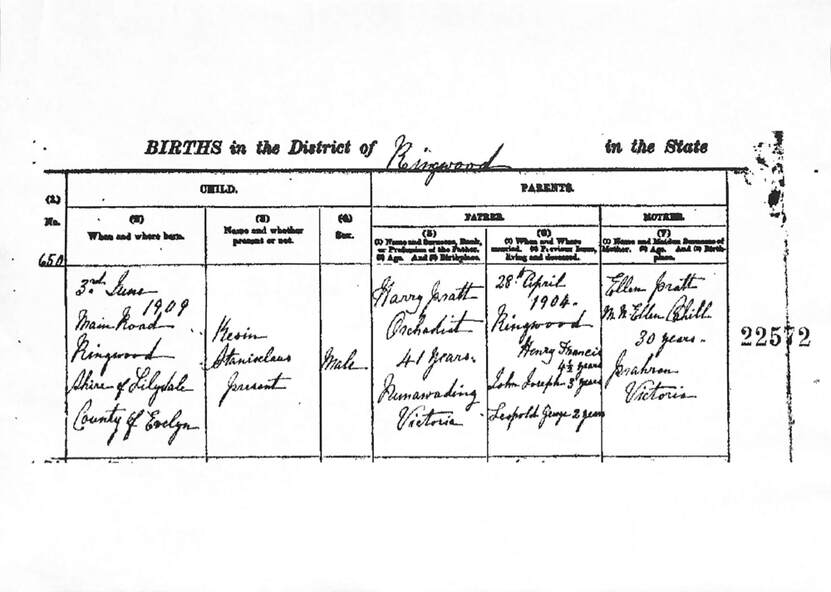 BIRTHS in the District of Ringwood in the State
CHILD.
PARENTS.
(1)
No.
(2)
When and where born.
(3)
Name and whether present or not.
(4)
Sex.
FATHER.
MOTHER.
(5)
(1) Name and Surname, Rank, or Profession of the Father. (2) Age. And (3) Birthplace.
(6)
(1) When and Where married. (2) Previous Issue, living and deceased.
(7)
(1) Name and Maiden Surname of Mother. (2) Age. And (3) Birthplace.
650
3rd June
1909
Main Road
Ringwood
Shire of Lilydale
County of Evelyn
Kevin
Stanisclaus
present
Male
Harry Pratt
Orchadist
41 years.
Nunawading
Victoria
28th April
1904.
Ringwood
Henry Francis
4½ years
John Joseph 3 years
Leopold George 2 years
Ellen Pratt
M.N Ellen Cahill
30 years.
Prahran
Victoria
22572